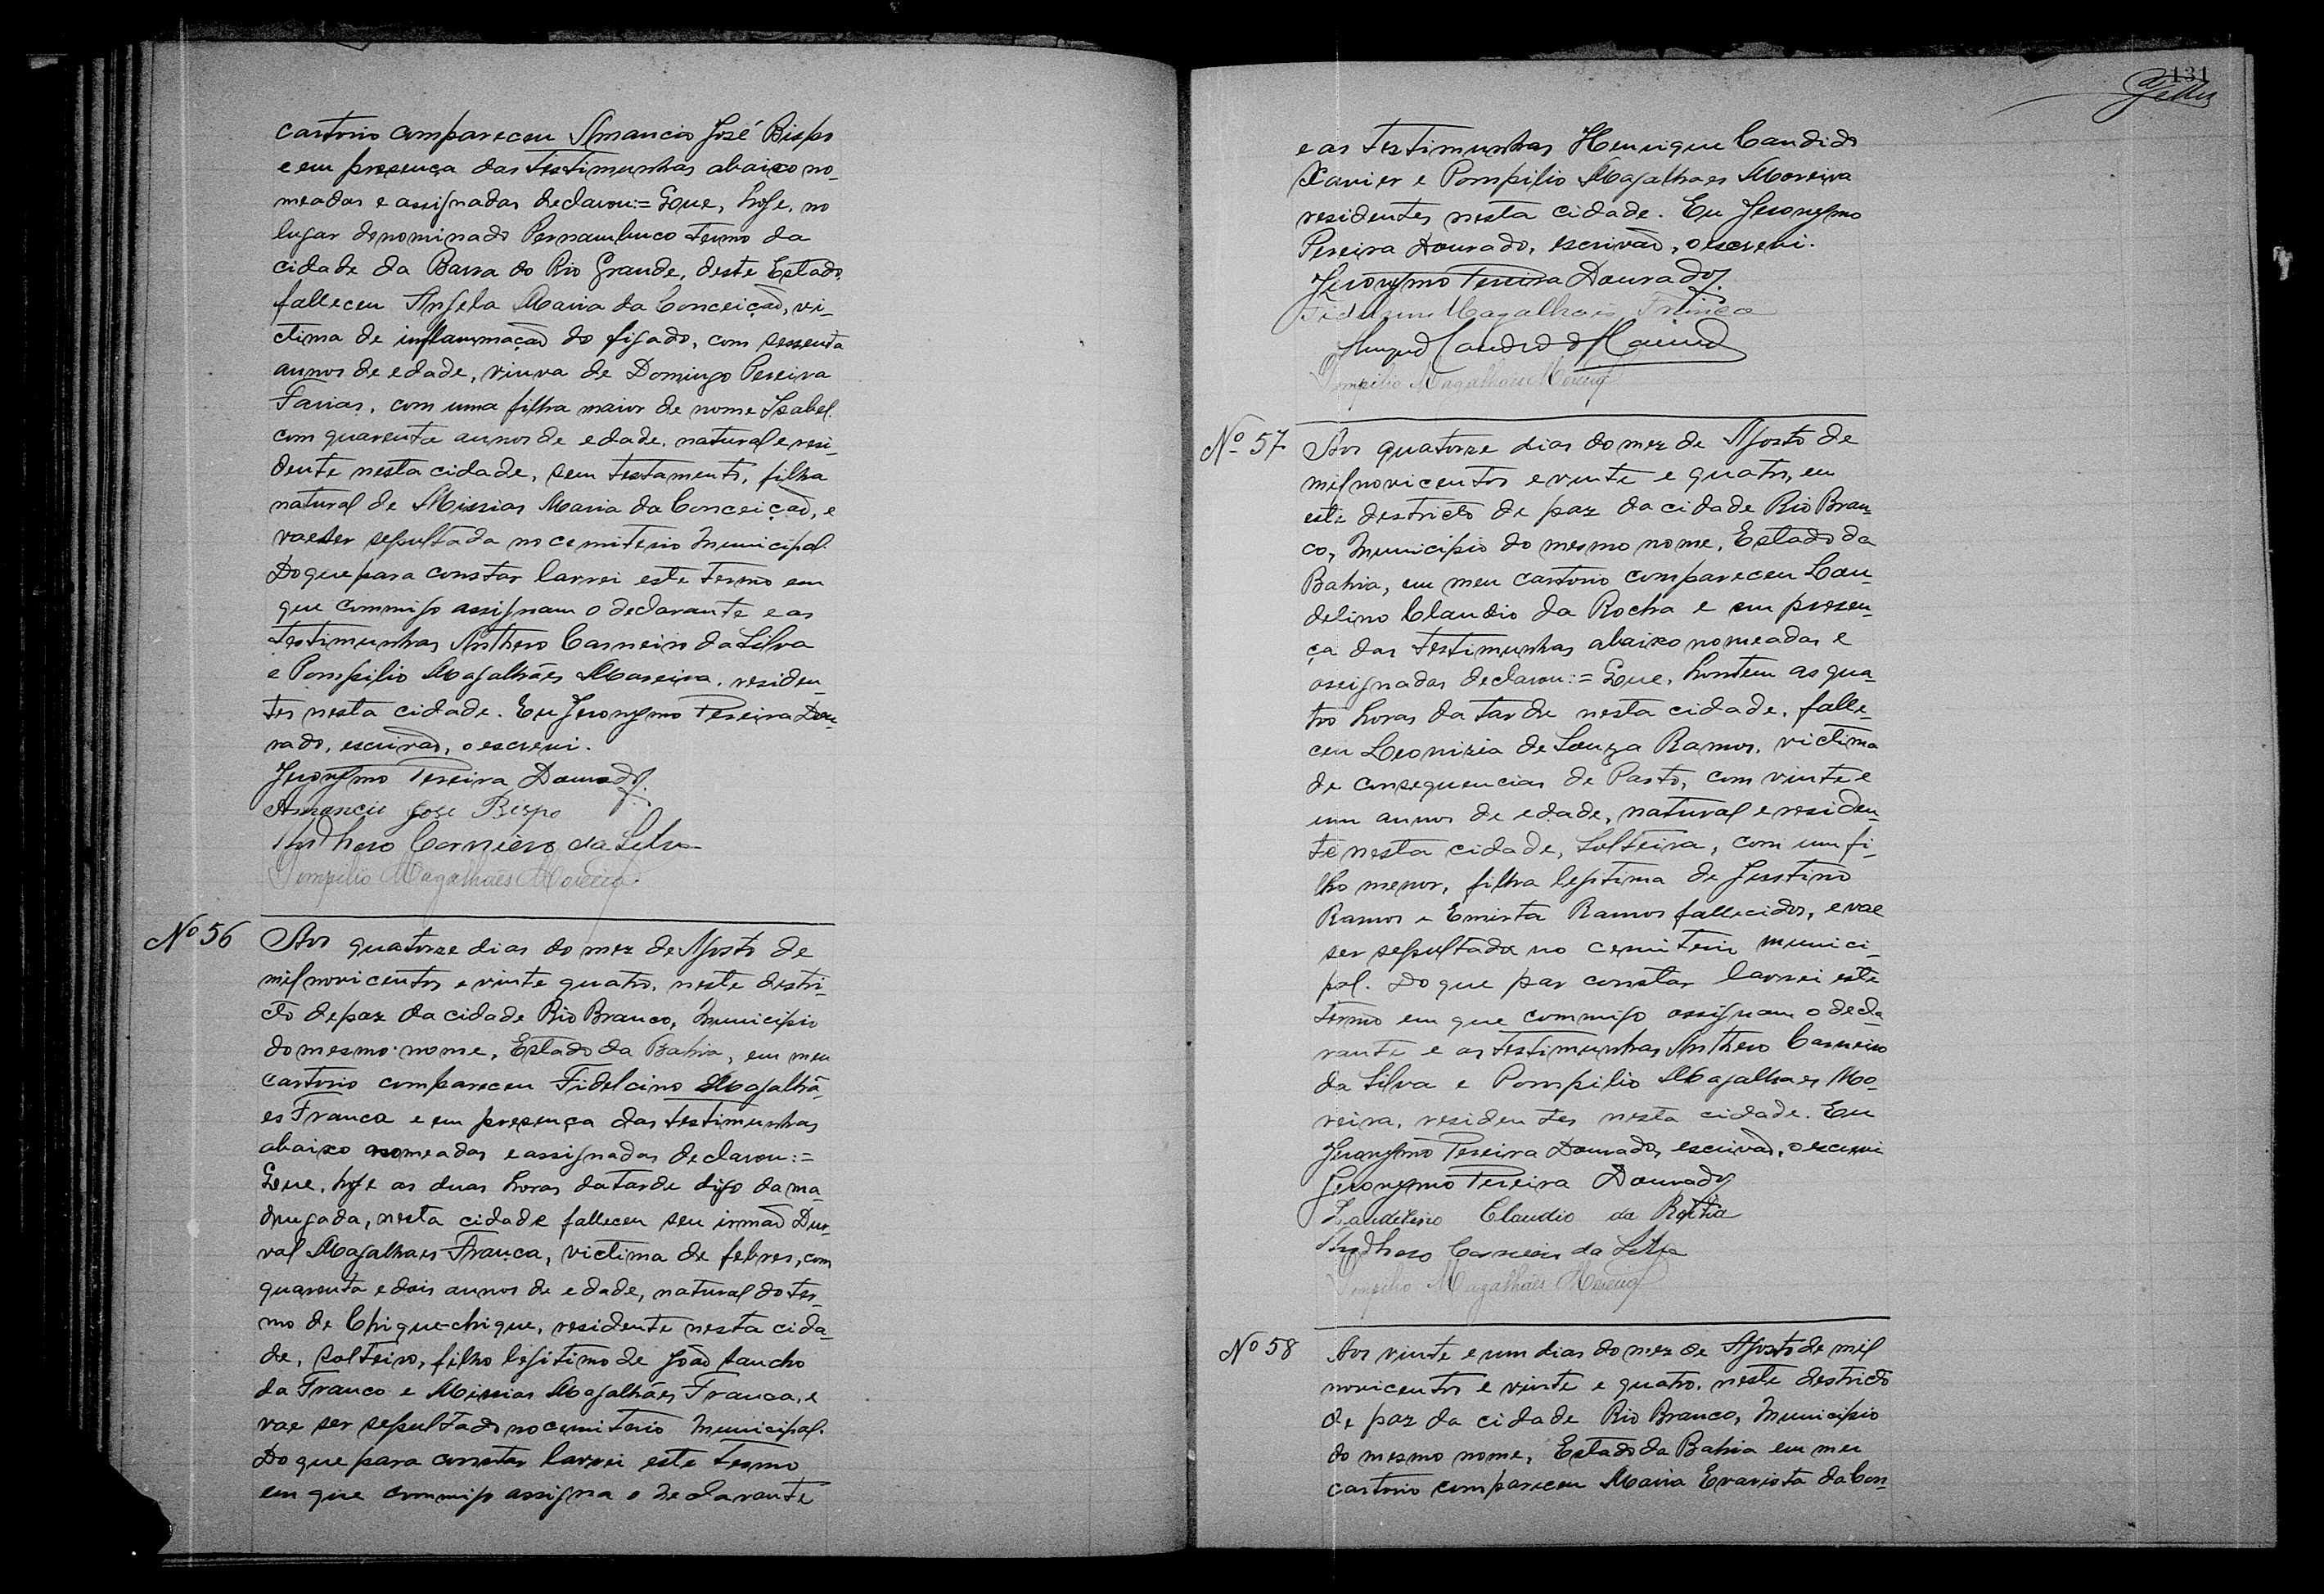 cartorio compareceu Amancio José Bispo
e em presença das testimunhas abaixo no-
meadas e assignadas declarou:= Que, hoje, no
lugar denominado Pernambuco termo da
cidade da Barra do Rio Grande, deste Estado,
falleceu Angela Maria da Conceição, vi-
ctima de inflammação do figado, com sessenta
annos de edade, viuva de Domingo Pereira
Farias, com uma filha maior de nome Isabel
com quarenta annos de edade, natural e resi-
dente nesta cidade, sem testamento, filha
natural de Missias Maria da Conceição, e
vae ser sepultada no cemiterio Municipal.
Do que para constar lavrei este termo em
que commigo assignam o declarante e as
testimunhas Anthero Carneiro da Silva
e Pompilio Magalhães Moreira, residen-
tes nesta cidade. Eu Jeronymo Pereira Dou-
rado, escrivão, o escrevi.
Jeronymo Pereira Dourado.
Amancio José Bispo
Anthero Carneiro da Silva
Pompilio Magalhães Moreira.
Nº 56
Aos quatorze dias do mez de Agosto de
mil novicentos e vinte quatro, neste destri-
cto de paz da cidade Rio Branco, Municipio
do mesmo nome, Estado da Bahia, em meu
cartorio compareceu Fidelcino Magalhã-
es Franca e em presença das testimunhas
abaixo nomeadas e assignadas declarou:=
Que, hoje as duas horas da tarde digo da ma-
drugada, nesta cidade falleceu seu irmão Dur-
val Magalhaes Franca, victima de febres, com
quarenta e dois annos de edade, natural do ter-
mo de Chique-chique, residente nesta cida-
de, solteiro, filho legitimo de João Sancho
da Franco e Missias Magalhães Franca, e
vae ser sepultado no cemiterio Municipal.
Do que para constar lavrei este termo
em que commigo assigna o declarante
131
e as testimunhas Henrique Candido
Xavier e Pompilio Magalhaes Moreira
residentes nesta cidade. Eu Jeronymo
Pereira Dourado, escrivão, o escrevi.
Jeronymo Pereira Dourado.
Magalhães Franca
Pompilio Magalhães Moreira
Nº 57
Aos quatorze dias do mez de Agosto de
mil novicentos e vinte e quatro, em
este destricto de paz da cidade Rio Bran-
co, Municipio do mesmo nome, Estado da
Bahia, em meu cartorio compareceu Lau-
delino Claudio da Rocha e em presen-
ça das testimunhas abaixo nomeadas e
assignadas declarou:= Que, hontem as qua-
tro horas da tarde nesta cidade, falle-
ceu Leonizia de Souza Ramos, victima
de consequencias de Parto, com vinte e
um annos de edade, natural e residen-
te nesta cidade, Solteira, com um fi-
lho menor, filha legitima de Justino
Ramos e Ramos fallecidos, e vae
ser sepultada no cemiterio munici-
pal. Do que par constar lavrei este
termo em que commigo assignam o decla-
rante e as testimunhas Anthero Carneiro
da Silva e Pompilio Magalhaes Mo-
reira, residentes nesta cidade. Eu
Jeronymo Pereira Dourado, escrivão, o escrevi
Jeronymo Pereira Dourado
Laudelino Claudio da Rocha
Anthero Carneiro da Silva
Pompilio Magalhães Moreira
Nº 58
Aos vinte e um dias do mez de Agosto de mil
novicentos e vinte e quatro, neste destricto
de paz da cidade Rio Branco, Municipio
do mesmo nome, Estado da Bahia em meu
cartorio compareceu Maria Evarista da Con-